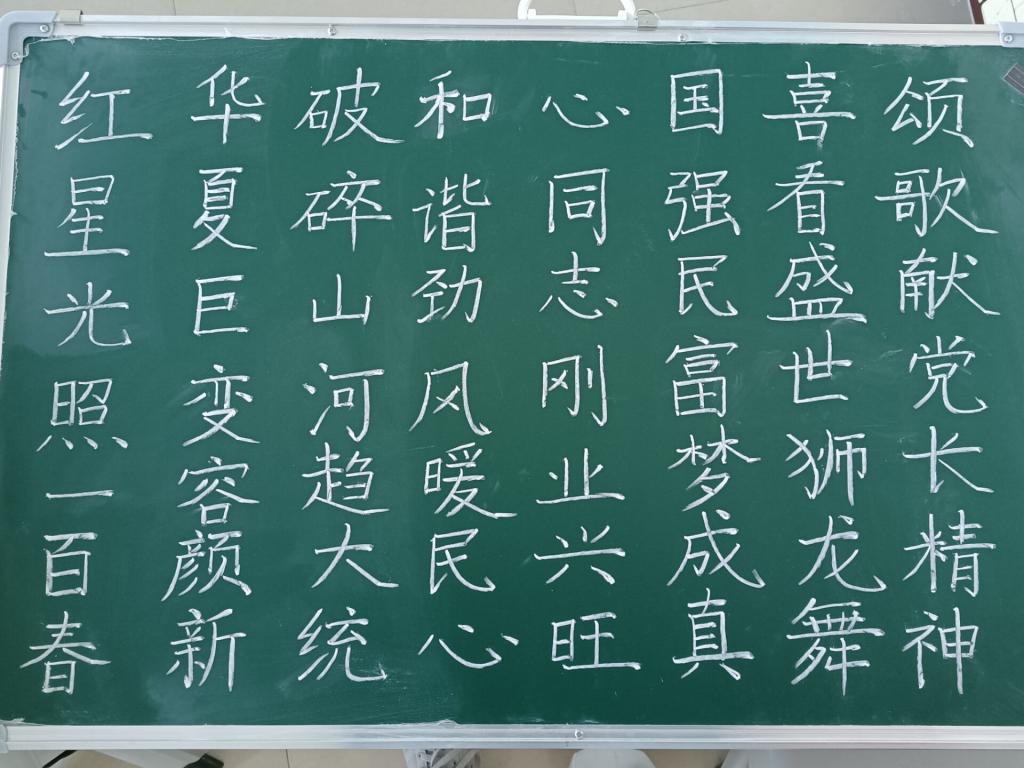 红星光照一百春
华夏巨变容颜新
破碎山河趋大统
和谐劲风暖民心
心同志刚业兴旺
国强民富梦成真
喜看盛世狮龙舞
颂歌献党长精神